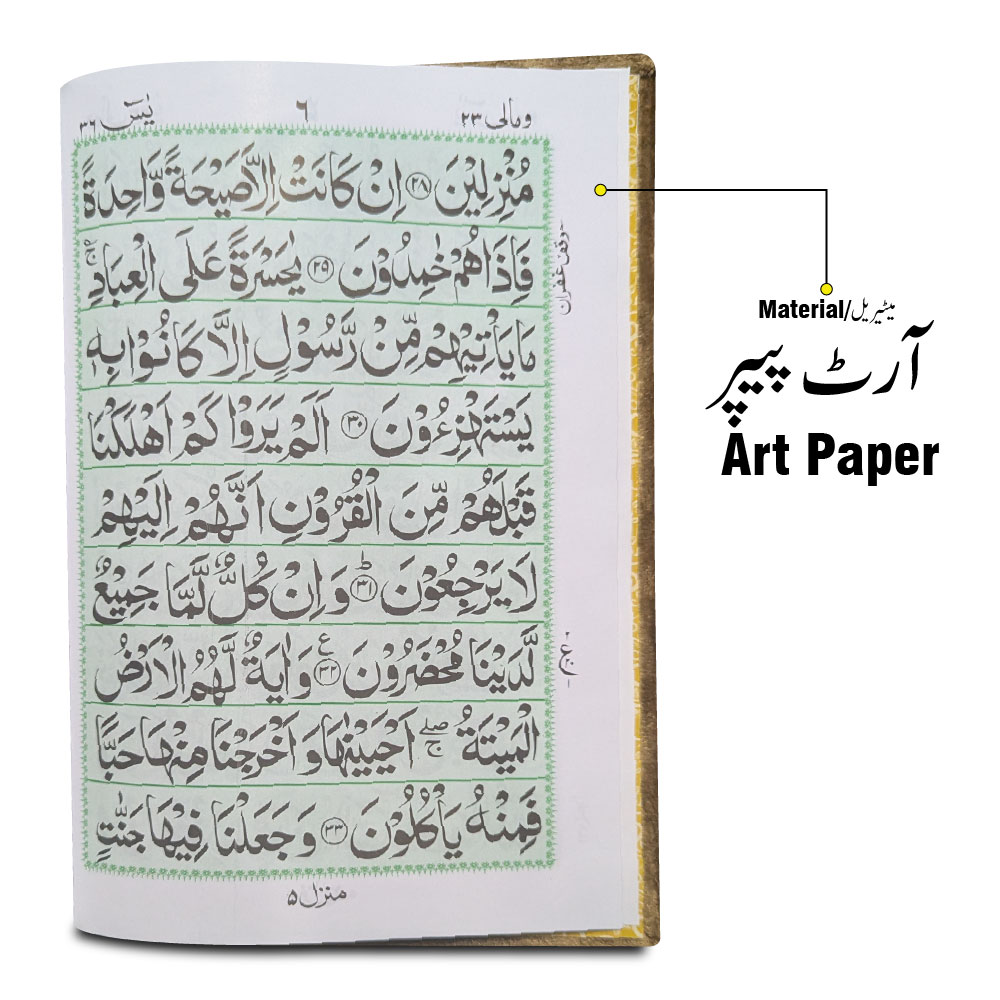 ومالی ۲۳ ٦ یٰسٓ ۳٦
مُنْزِلِیْنَ ۲۸ اِنْ كَانَتْ اِلَّا صَیْحَةً وَّاحِدَةً
فَاِذَا هُمْ خٰمِدُوْنَ ۲۹ یٰحَسْرَةً عَلَی الْعِبَادِ ۚ
وقف غفران
مَا یَاْتِیْهِمْ مِّنْ رَّسُوْلٍ اِلَّا كَانُوْا بِهٖ
یَسْتَهْزِءُوْنَ ۳۰ اَلَمْ یَرَوْا كَمْ اَهْلَكْنَا
قَبْلَهُمْ مِّنَ الْقُرُوْنِ اَنَّهُمْ اِلَیْهِمْ
لَا یَرْجِعُوْنَ ۳۱ؕ وَ اِنْ كُلٌّ لَّمَّا جَمِیْعٌ
لَّدَیْنَا مُحْضَرُوْنَ ۳۲ ع وَ اٰیَةٌ لَّهُمُ الْاَرْضُ
ع
الْمَیْتَةُ ۖۚ اَحْیَیْنٰهَا وَ اَخْرَجْنَا مِنْهَا حَبًّا
فَمِنْهُ یَاْكُلُوْنَ ۳۳ وَ جَعَلْنَا فِیْهَا جَنّٰتٍ
منزل ۵
Material/میٹیریل
آرٹ پیپر
Art Paper